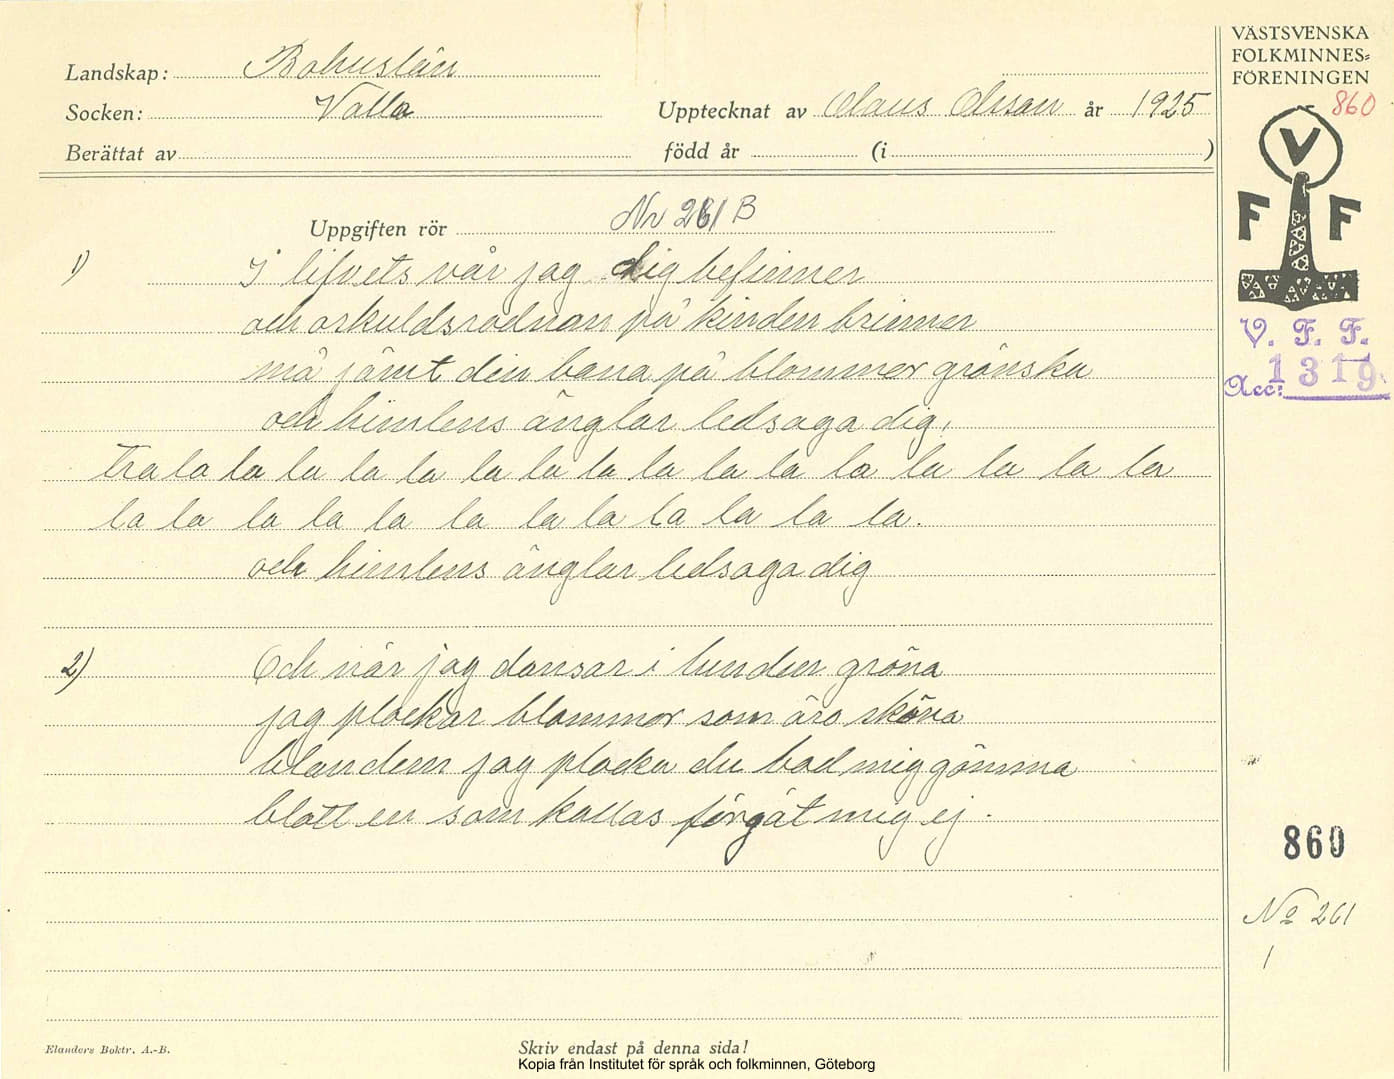 Landskap: Bohuslän
Socken: Valla
Upptecknat av Olaus Olsson år 1925
Berättat av
född år (i )
Uppgiften rör Nr 261 B
1) I lifvets vår jag dig befinner
och oskuldsrodnan på kinden brinner
må jämt din bana på blommor grönska
och himlens änglar ledsaga dig,
tra la la la la la la la la la la la la la la la la
la la la la la la la la la la la la.
och himlens änglar ledsaga dig
2) Och när jag dansar i lunden gröna
jag plockar blommor som äro sköna
bland dem jag plocka du bad mig gömma
blott en som kallas förgät mig ej.
Elanders Boktr. A.-B.
Skriv endast på denna sida!
Kopia från Institutet för språk och folkminnen, Göteborg
VÄSTSVENSKA
FOLKMINNES=
FÖRENINGEN
860
V
F F
V. F. F.
Acc: 1319
860
No 261
1